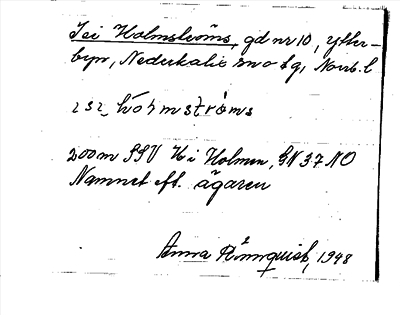 Jei Holmströms, gd nr 10, Ytter-
byn, Nederkalix sn o tg, Norrb. l
200 m SSV H i Holmen, GK 37 NO
Namnet eft. ägaren
Anna Rönnquist, 1948